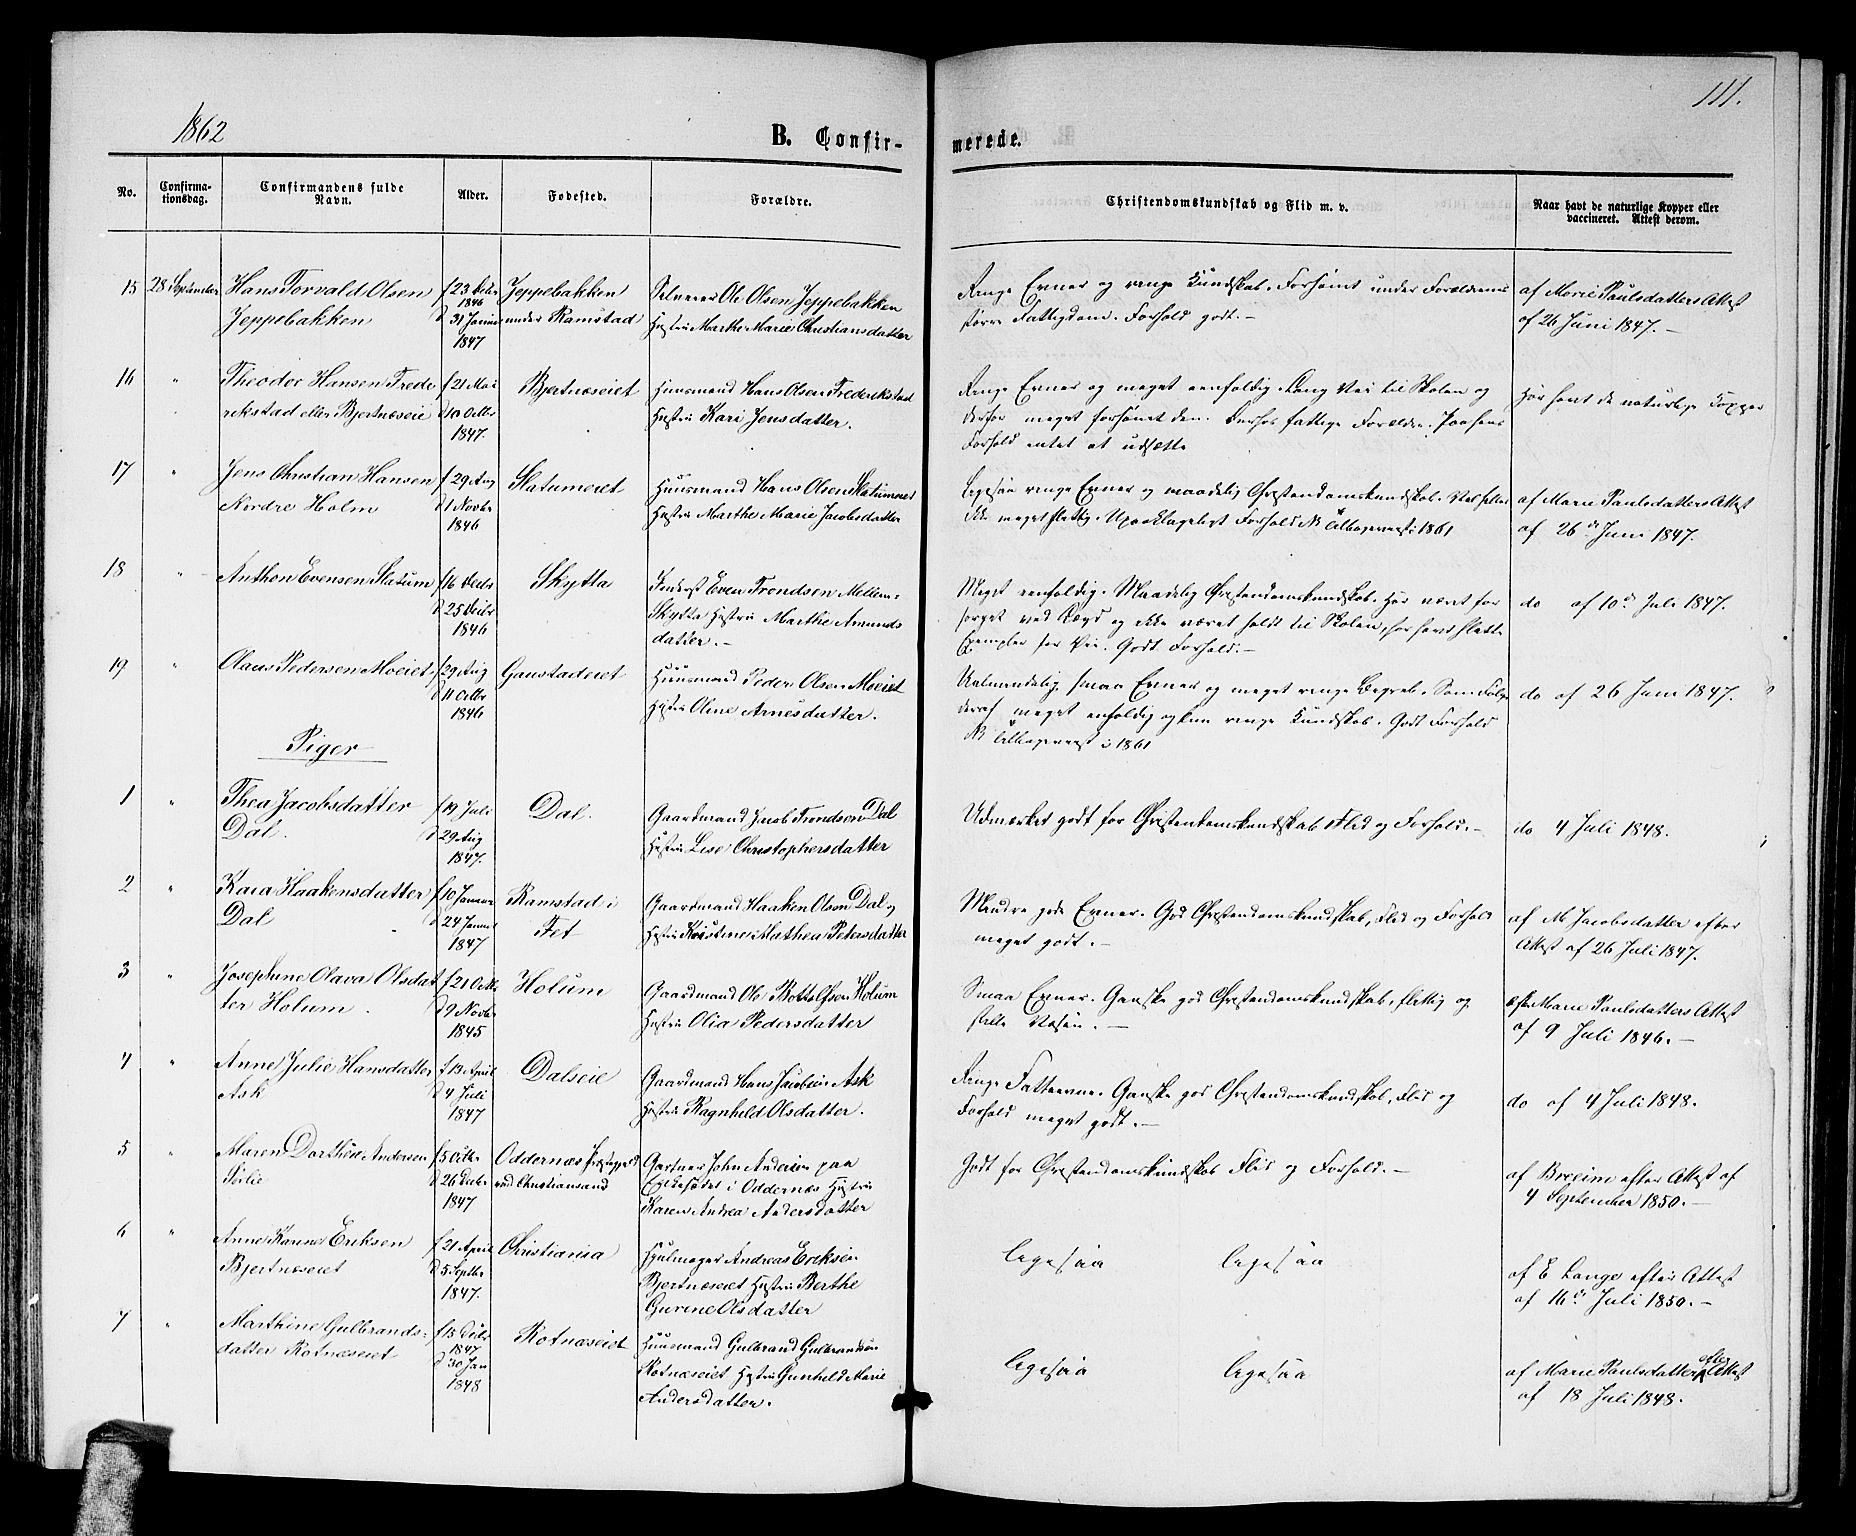 1862
B. Confir-
merede.
111.
No.
Confirma-
tionsdag.
Confirmandens fulde
Navn.
Alder.
Fødested.
Forældre.
Christendomskundskab og Flid m. v.
Naar havt de naturlige Kopper eller
vaccineret. Attest derom.
15 28 September Hans Torvald Olsen
Jeppebakken
f 23 Decbr
1846
d 31 Januar
1847
Jeppebakken
under Ramstad
Selveier Ole Olsen Jeppebakken
Hustru Marthe Marie Christiansdatter
Ringe Evner og ringe Kundskab. Forsømt under Forældrenes
større Fattigdom. Forhold godt. -
af Marie Paulsdatters Attest
af 26 Juni 1847. -
16 " Theodor Hansen Frede
rikstad eller Bjertnæseie
f 21 Mai
d 10 Octbr
1847.
Bjertnæseiet
Huusmand Hans Olsen Frederikstad
Hustru Kari Jensdatter.
Ringe Evner og meget eenfoldig. Lang Vei til Skolen og
derfor meget forsømt den. Derhos fattige Forældre.
Forhold intet at udsætte
Har havt de naturlige Kopper
17 " Jens Christian Hansen
Nordre Holm
f 29 Aug
d 1 Novbr
1846
Slatumeiet
Huusmand Hans Olsen Slatumeiet
Hustru Marthe Marie Jacobsdatter
Ligesaa ringe Evner og maadelig Christendomskundskab.
ikke meget flittig. Upaaklageligt Forhold. NB tilbageviist i 1861
af Marie Paulsdatters Attest
af 26de Juni 1847.
18 " Anthon Evensen Slatum
f 16 Decbr
d 25 Decbr
1846
Skytta
Inderst Even Trondsen Mellem-
Skytta Hustru Marthe Amunds
datter. -
Meget eenfoldig. Maadelig Christendomskundskab. Har været for
og ikke været holdt til Skolen, har havt slette
Exempler for Øie. Godt Forhold. -
do af 10de Juli 1847.
19 " Olaus Pedersen Moeiet
f 29 Aug
d 11 Octbr
1846
Gaustadeiet
Huusmand Peder Olsen Moeiet
Hustru Oline Arnesdatter.
Ualmindelig smaa Evner og meget ringe Begreb. Som Følge
deraf meget enfoldig og kun ringe Kundskab. Godt Forhold
NB tilbageviist i 1861
do af 26 Juni 1847.
Piger
1 " Thea Jacobsdatter
Dal.
f 19 Juli
d 29 Aug
1847.
Dal.
Gaardmand Jacob Trondsen Dal
Hustru Lise Christophersdatter
Udmærket godt for Christendomskundskab Flid og Forhold. -
do 4 Juli 1848.
2 " Kaia Haakensdatter
Dal
f 10 Januar
d 24 Januar
1847
Ramstad i
Fet
Gaardmand Haaken Olsen Dal og
Hustru Kristine Mathea Petersdatter
Mindre gode Evner. God Christendomskundskab, Flid og Forhold
meget godt. -
af M. Jacobsdatter efter
Attest af 26 Juli 1847.
3 " Josephine Olava Olsdat
ter Holum.
f 21 Octbr
d 9 Novbr
1845
Holum
Gaardmand Ole Rottolfsen Holum
Hustru Olia Pedersdatter
Smaa Evner. Ganske god Christendomskundskab, flittig og
stille Væsen. -
efter Marie Paulsdatters Attest
af 9 Juli 1846. -
4 " Anne Julie Hansdatter
Ask
f 13 April
d 4 Juli
1847
Dalseie
Gaardmand Hans Jacobsen Ask
Hustru Ragnhild Olsdatter.
Ringe Fatteevne. Ganske god Christendomskundskab, Flid og
Forhold meget godt. -
do af 4 Juli 1848.
5 " Maren Dorthea Andersen
Sørlie
f 5 Octbr
d 26 Decbr
1847
Oddernæs Præstegjeld
ved Christiansand
Gartner John Andersen paa
i Oddernæs Hustru
Karen Andrea Andersdatter
Godt for Christendomskundskab Flid og Forhold. -
af Breeim efter Attest af
4 September 1850. -
6 " Anne Karine Eriksen
Bjertnæseiet
f 21 April
d 5 Septbr
1847.
Christiania
Hjulmager Andreas Eriksen
Bjertnæseiet Hustru Berthe
Gurine Olsdatter
Ligesaa Ligesaa
af E Lange efter Attest
af 16de Juli 1850. -
7 " Marthine Gulbrands-
datter Rotnæseiet
f 15 Decbr
1847
d 30 Jan
1848
Rotnæseiet
Huusmand Gulbrand Gulbrandsen
Rotnæseiet Hustru Gunhild Marie
Andersdatter.
Ligesaa Ligesaa
af Marie Paulsdatter efter Attest
af 18 Juli 1848.